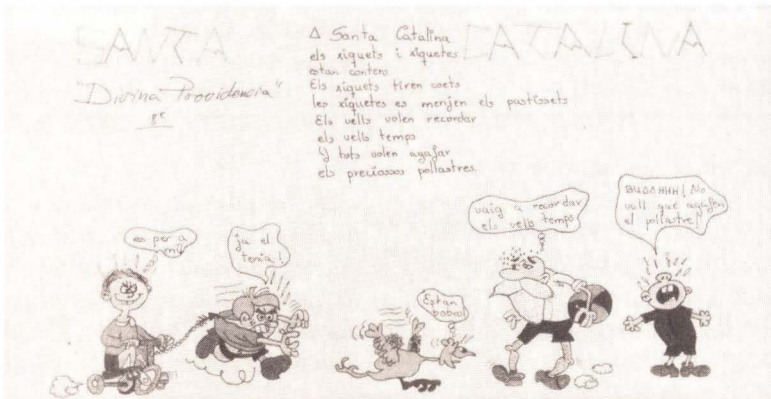 SANTA CATALINA
"Divina Providencia"
8è
A Santa Catalina
els xiquets i xiquetes
estan contens
Els xiquets tiren coets
les xiquetes es menjen els pastissets
Els vells volen recordar
els vells temps
Y tots volen agafar
els preciosos pollastres.
es per a
mi!
ja el
tenia!
Estan
bobos!
vaig a recordar
els vells temps
BUAAHHH! No
vull que agafen
el pollastre!